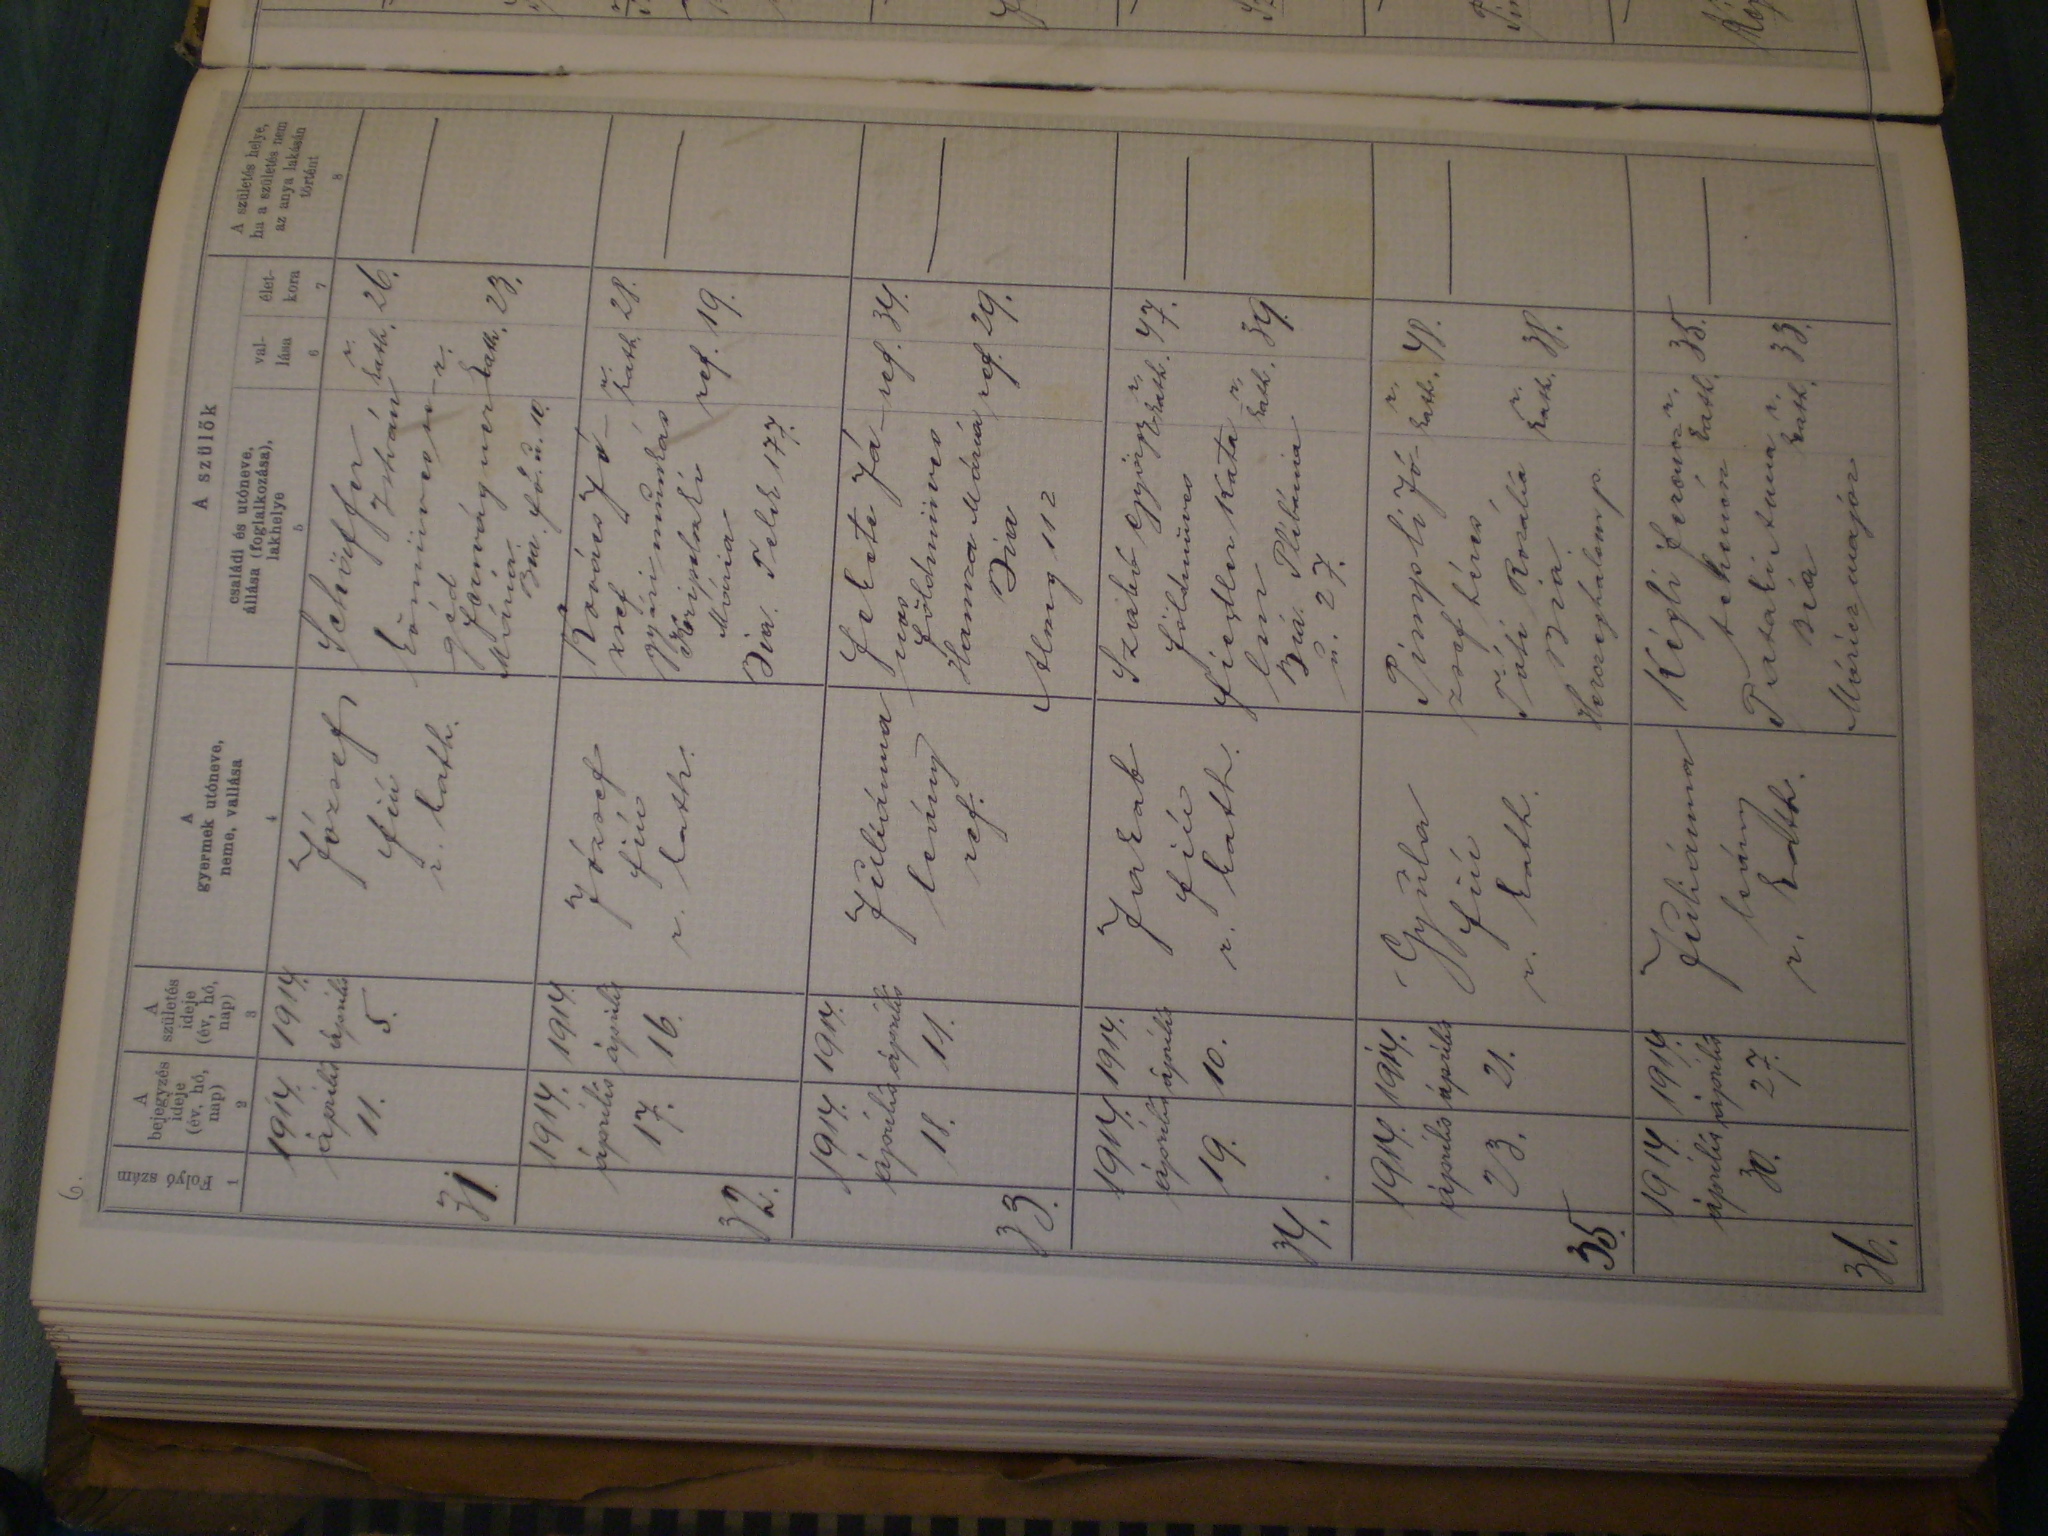 6.
Folyó szám
A bejegyzés ideje (év, hó, nap)
A születés ideje (év, hó, nap)
A gyermek utóneve, neme, vallása
A szülők
családi és utóneve, állása (foglalkozása), lakhelye
vallása
életkora
A születés helye, ha a születés nem az anya lakásán történt
1 2 3 4 5 6 7 8
31.
1914. április 11.
1914. április 5.
József
fiú
r. kath.
Schöffer
István
kőműves
r. kath. 26.
Mária
r. kath. 23.
Bia. fő. u. 10.
32.
1914. április 17.
1914. április 16.
József
fiú
r. kath.
Kovács Jó-
zsef
gyári munkás
r. kath. 28.
Mária
ref. 19.
Bia. Telek 177.
33.
1914. április 18.
1914. április 11.
Juliánna
leány
ref.
Fekete Já-
nos
földmives
ref. 34.
Hanna Mária
ref. 29.
Bia
112
34.
1914. április 19.
1914. április 10.
Jakab
fiú
r. kath.
Szabó György
földmives
r. kath. 47.
Fiedler Kata
lin
r. kath. 39.
Bia. Plébánia
u. 27.
35.
1914. április 23.
1914. április 21.
Gyula
fiú
r. kath.
Pimpli Jó-
zsef béres
r. kath. 48.
Tóti Rozália
r. kath. 38.
Bia
Herczeghalom p.
36.
1914. április 30.
1914. április 27.
Juliánna
leány
r. kath.
Kégli Ferencz
tehenész
r. kath. 35.
Pataki Anna
r. kath. 33.
Bia
Móricz major